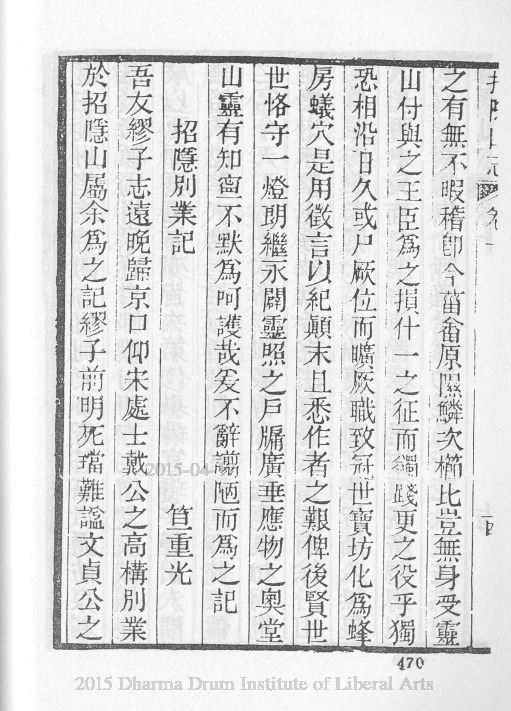 招隱山志 卷十
之有無不暇稽卽今菑畬原隰鱗次櫛比豈無身受靈
山付與之王臣爲之損什一之征而蠲踐更之役乎獨
恐相沿日久或尸厥位而曠厥職致冠世寶坊化爲蜂
房蟻穴是用徵言以紀顛末且悉作者之艱俾後賢世
世恪守一燈朗繼永闢靈照之戶牖廣垂應物之奧堂
山靈有知寧不默爲呵護哉爰不辭謭陋而爲之記
招隱別業記 笪重光
吾友繆子志遠晚歸京口仰宋處士戴公之高構別業
於招隱山屬余爲之記繆子前明死璫難諡文貞公之
470
2015-04-
2015 Dharma Drum Institute of Liberal Arts